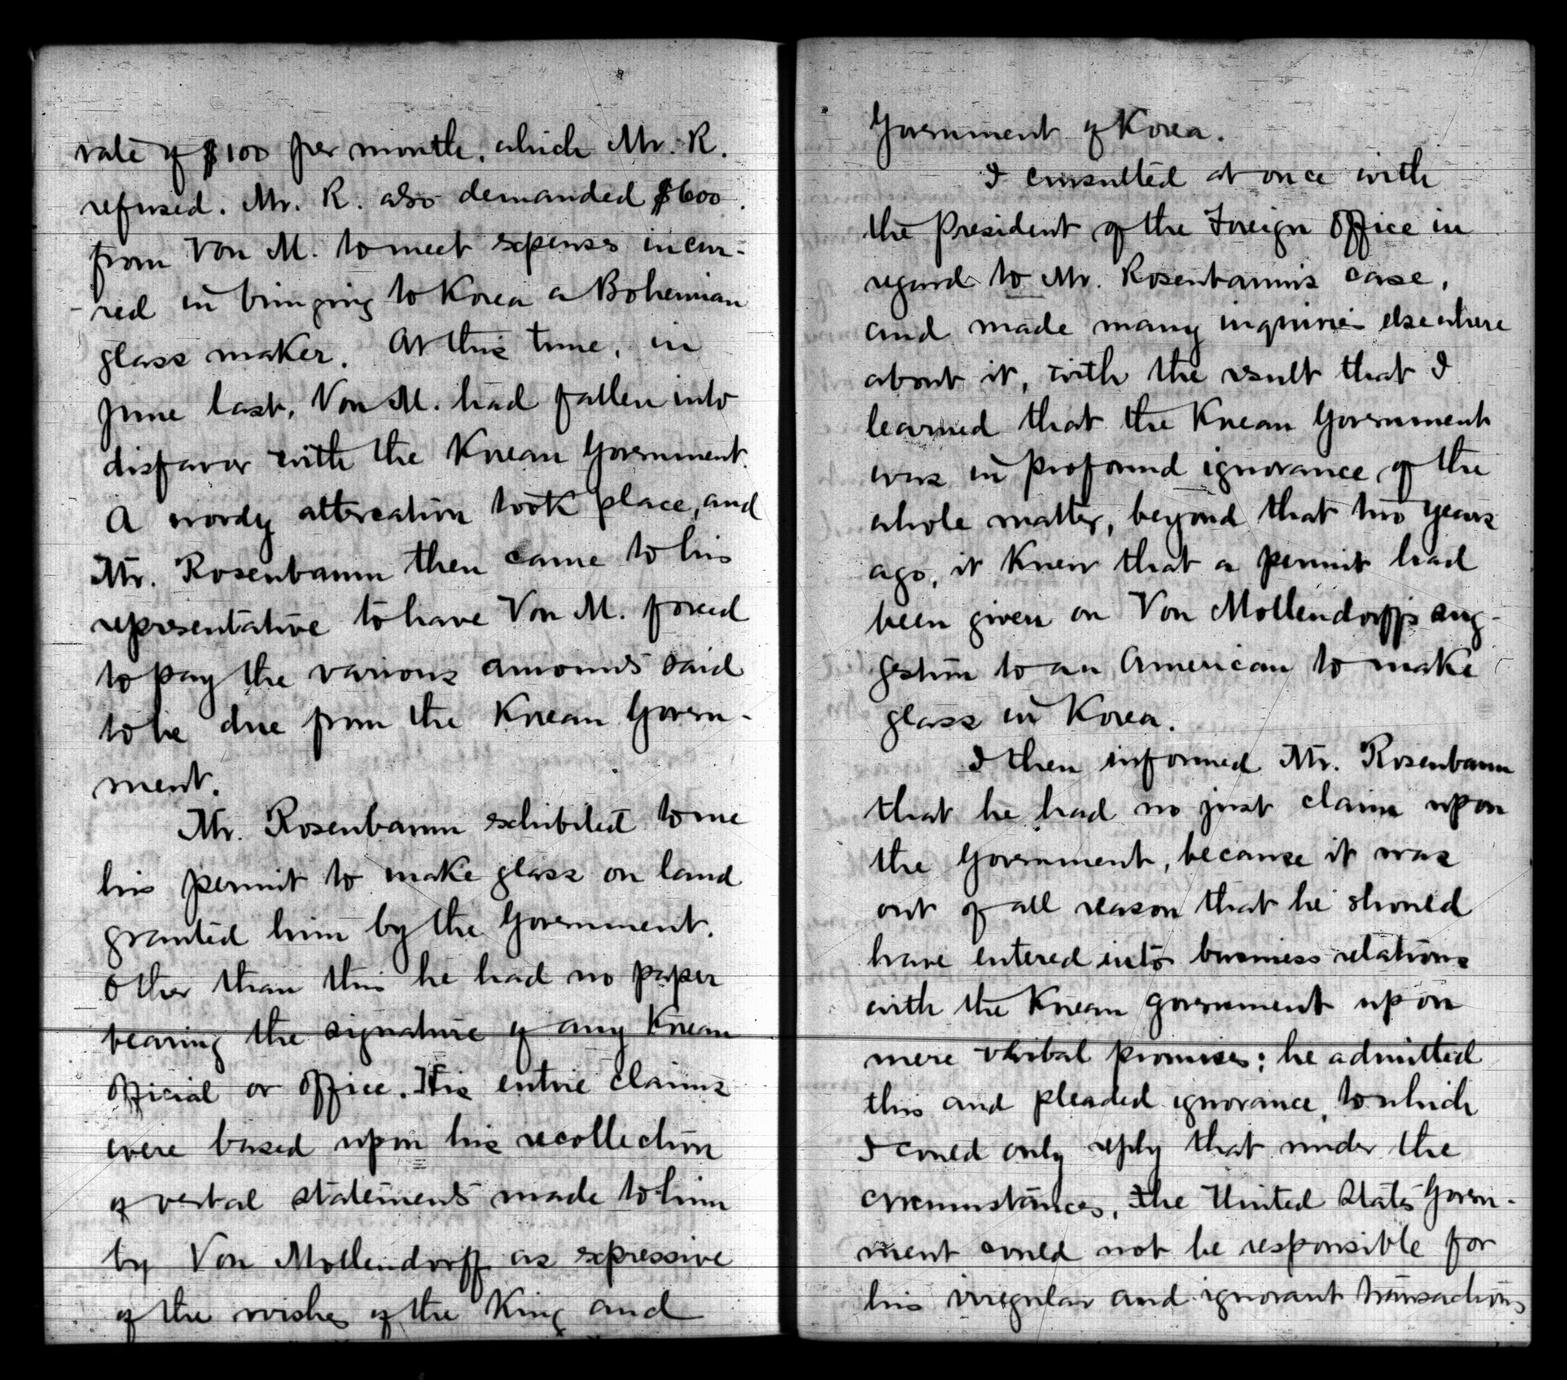 rate of $100 per month, which Mr. R.
refused. Mr. R. also demanded $600
from Von M. to meet expenses incur-
red in bringing to Korea a Bohemian
glass maker. At this time, in
June last, Von M. had fallen into
disfavor with the Korean Government.
A wordy altercation took place, and
Mr. Rosenbaum then came to his
representative to have Von M. forced
to pay the various amounts said
to be due from the Korean Govern-
ment.
Mr. Rosenbaum exhibited to me
his permit to make glass on land
granted him by the Government.
Other than this he had no paper
bearing the signature of any Korean
official or office. His entire claims
were based upon his recollection
of verbal statements made to him
by Von Mollendorff as expressive
of the wishes of the King and
Government of Korea.
I consulted at once with
the President of the Foreign Office in
regard to Mr. Rosenbaum's case,
and made many inquiries elsewhere
about it, with the result that I
learned that the Korean Government
was in profound ignorance of the
whole matter, beyond that two years
ago, it knew that a permit had
been given on Von Mollendorff's sug-
gestion to an American to make
glass in Korea.
I then informed Mr. Rosenbaum
that he had no just claim upon
the Government, because it was
out of all reason that he should
have entered into business relations
with the Korean government upon
mere verbal promises; he admitted
this and pleaded ignorance, to which
I could only reply that under the
circumstances, the United States Govern-
ment could not be responsible for
his irregular and ignorant transactions